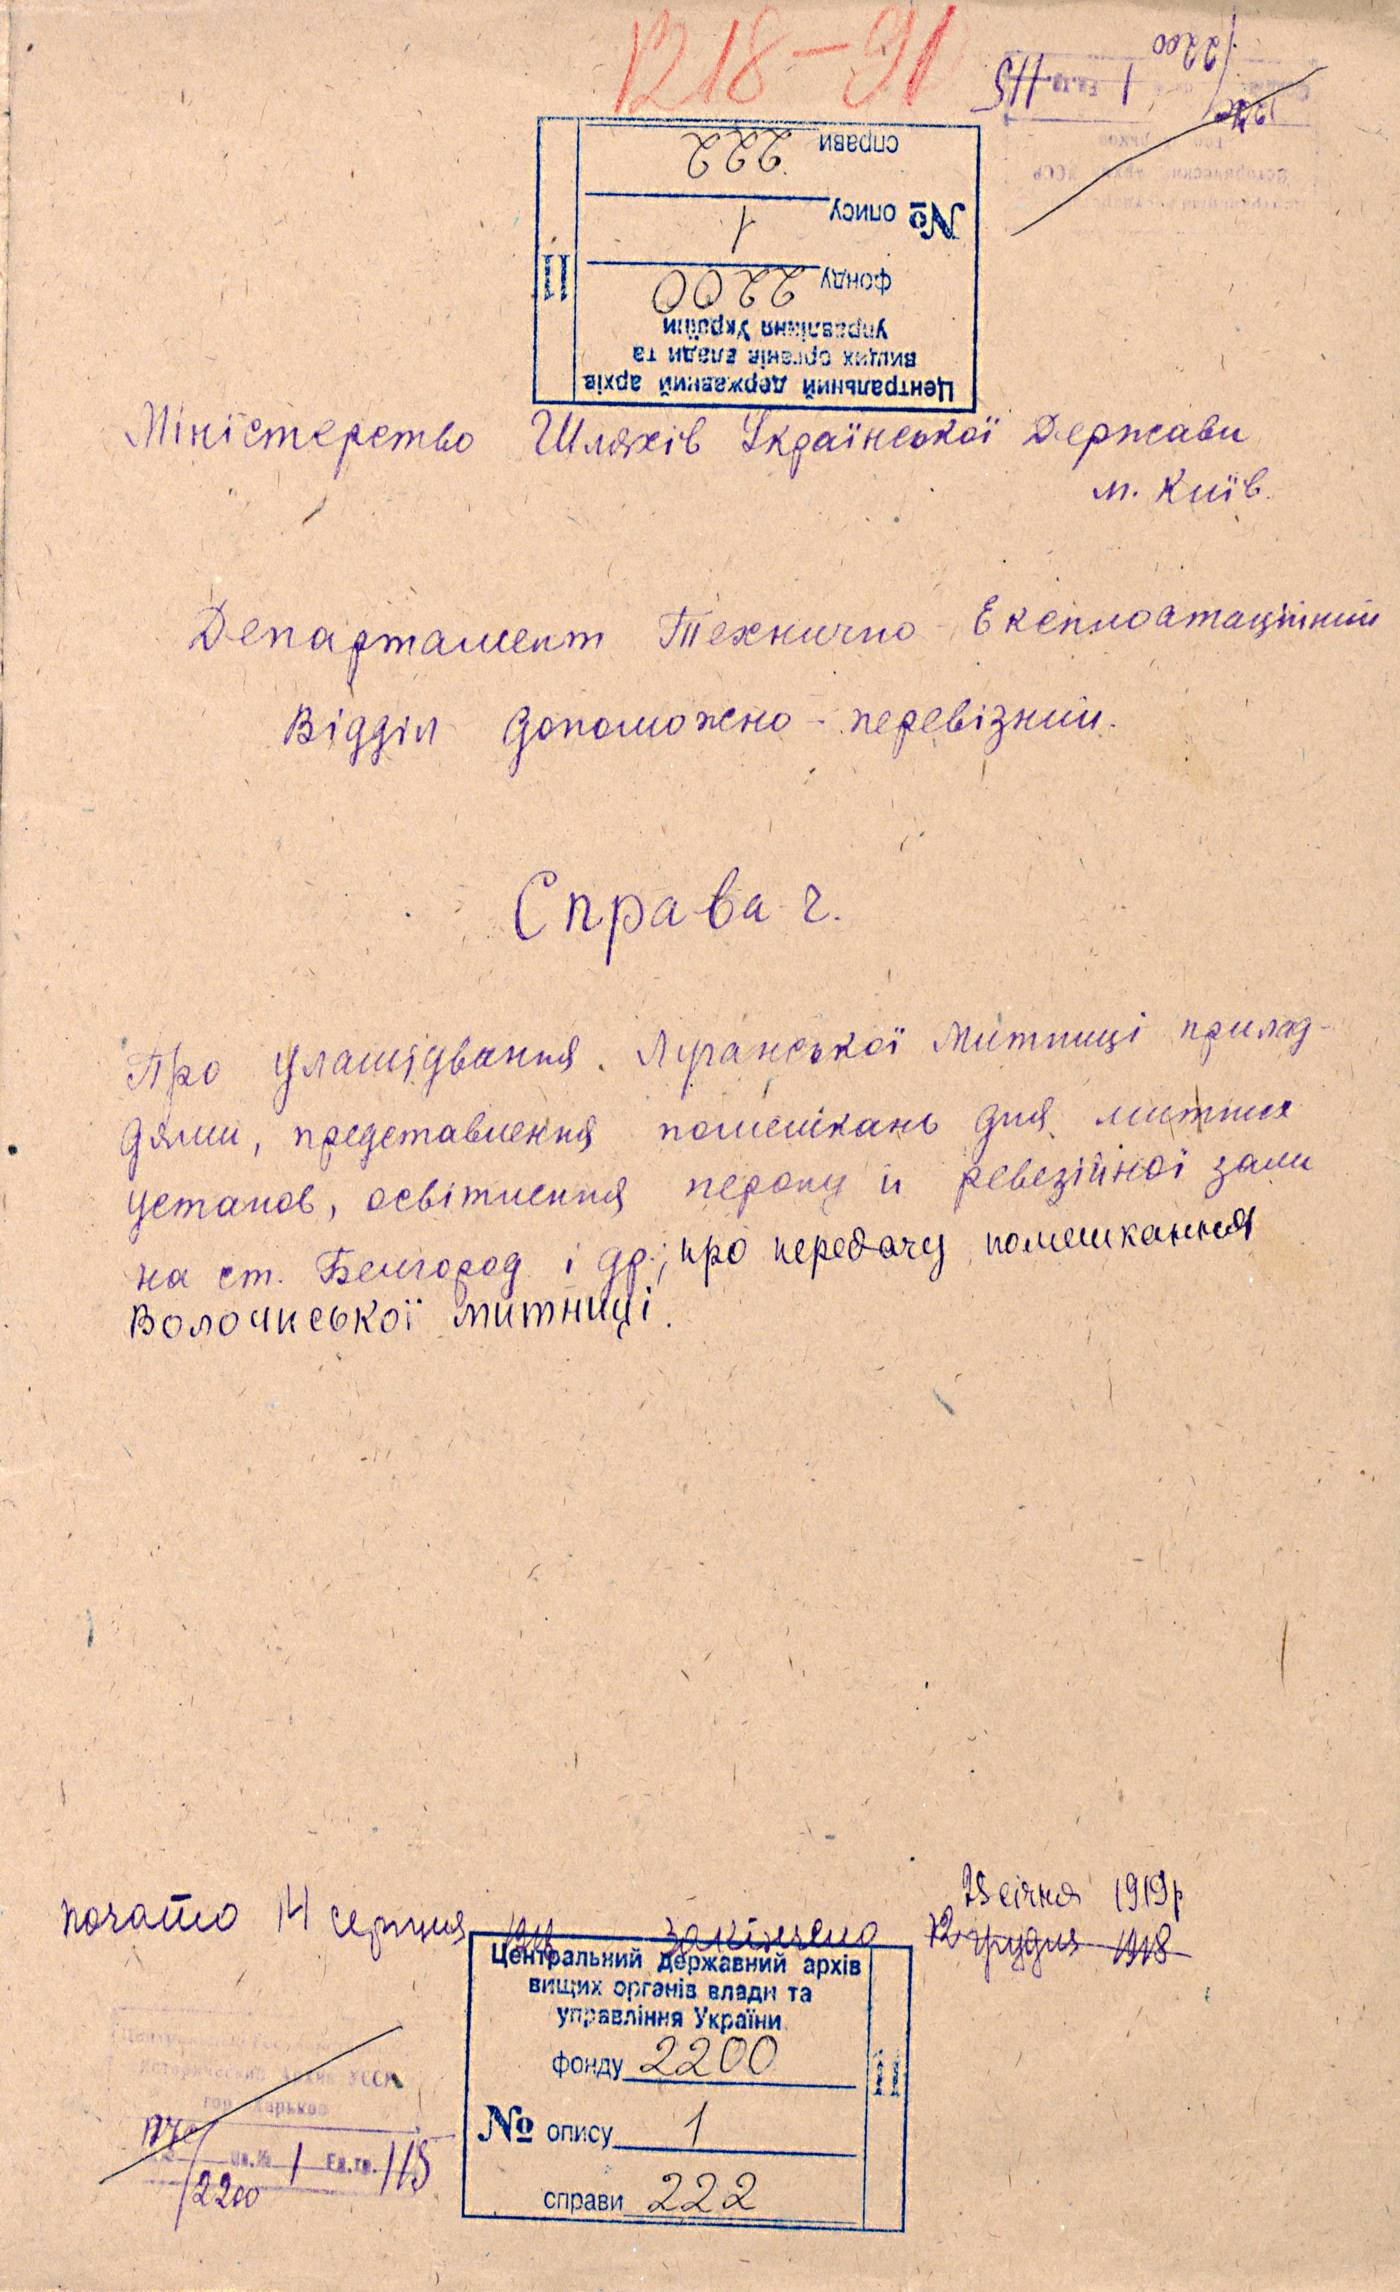 1218-91
115
1
2200
справи 222
№ опису 1
фонду 2200
II
управління України
вищих органів влади та
Центральний державний архів
Міністерство Шляхів Української Держави
м. Київ.
Департамент Технично Експлоатаційний
Відділ допоможно-перевізний.
Справа ч.
Про улаштування Луганської Митниці прилад-
дями, представлення помешкань для митних
установ, освітлення перону й ревезійної зали
на ст. Белгород і др.; про передачу помешкання
Волочиської митниці.
25 січня 1919р
почато 14 серпня 1918 закінчено 12 грудня 1918
Центральний державний архів
вищих органів влади та
управління України
фонду 2200
№ опису 1
справи 222
II
Исторический Архив УССР
гор. Харьков
Оп.№ 1 Ед.хр. 115
2200